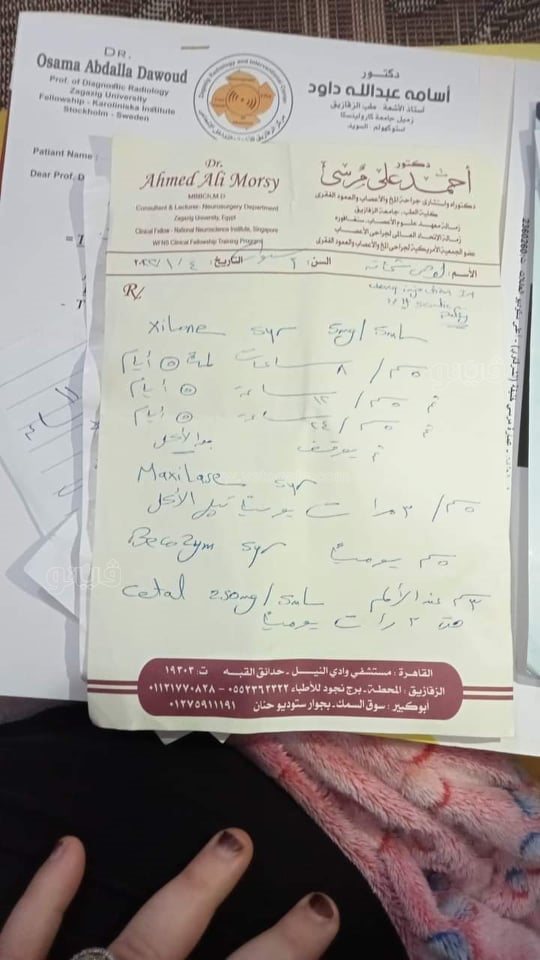 DR.
Osama Abdalla Dawoud
Prof. of Diagnostic Radiology
Zagazig University
Fellowship - Karoliniska Institute
Stockholm - Sweden
دكتور
أسامه عبدالله داود
أستاذ الأشعة - طب الزقازيق
زميل جامعة كارولينسكا
استوكهولم - السويد
Zagazig Radiology and Intervention Center
Patiant Name :
Dear Prof. D
Dr.
Ahmed Ali Morsy
MBBCh,M.D
Consultant & Lecturer- Neurosurgery Department
Zagazig University, Egypt
Clinical Fellow - National Neuroscience Institute, Singapore
WFNS Clinical Fellowship Training Program
دكتور
أحمد على مرسى
دكتوراه واستشارى جراحة المخ والأعصاب والعمود الفقرى
كلية الطب - جامعة الزقازيق
زمالة معهد علوم الأعصاب - سنغافوره
زمالة الاتحاد العالمى لجراحى الأعصاب
عضو الجمعية الأمريكية لجراحى المخ والأعصاب والعمود الفقرى
الأسم :
السن :
التاريخ : ٤ / ١ / ٢٠٢٢
R/
injection
Xilone syr 5mg/5mL
٥سم / ٨ ساعات لمدة ٥ أيام
ثم ٥سم / ١٢ ساعة ٥ أيام
ثم ٥سم / ٢٤ ساعة ٥ أيام
ثم يوقف بعد الأكل
Maxilase syr
٥سم / ٣ مرات يومياً قبل الأكل
Becozym syr ٥سم يومياً
Cetal 250mg/5mL ٣سم عند الألم
٢ مرات يومياً
القاهرة : مستشفى وادي النيل - حدائق القبه ت : ١٩٣٠٣
الزقازيق : المحطة - برج نجود للأطباء ٠٥٥٢٣٦٢٣٢٢ - ٠١١٣١٧٧٠٨٢٨
أبوكبير : سوق السمك - بجوار ستوديو حنان ٠١٢٧٥٩١١١٩١
فيتو